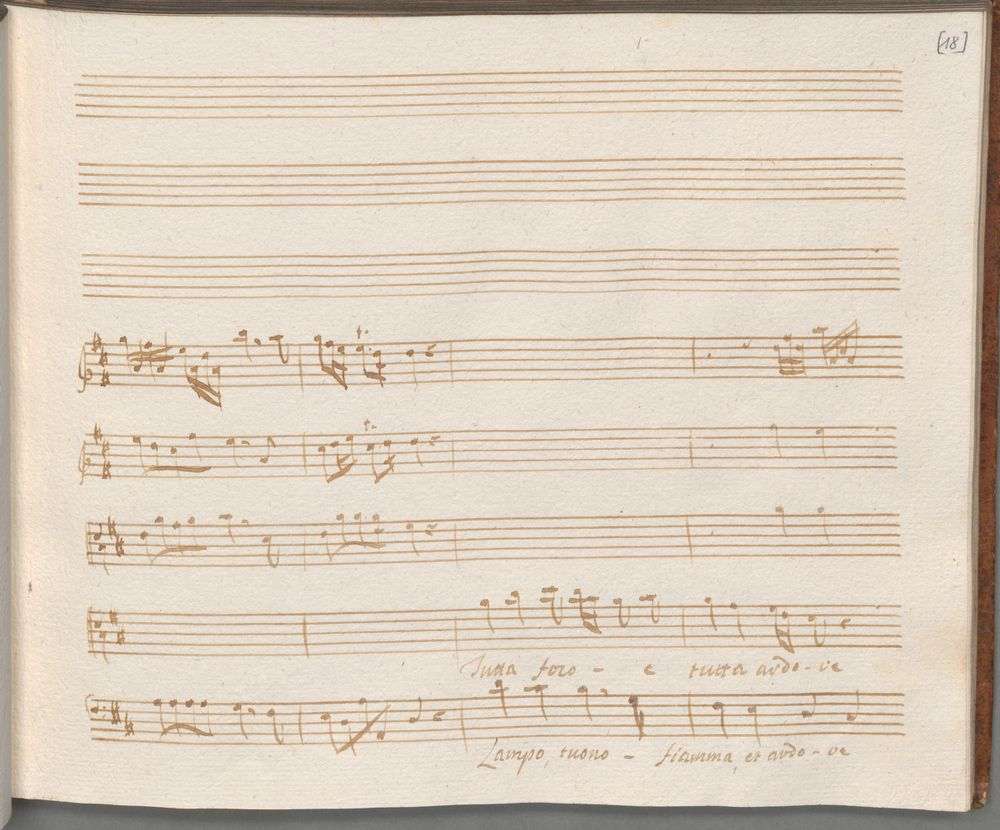 [18]
Tutta foco - e tutta ardo - re
Lampo, tuono - fiamma, et ardo - re